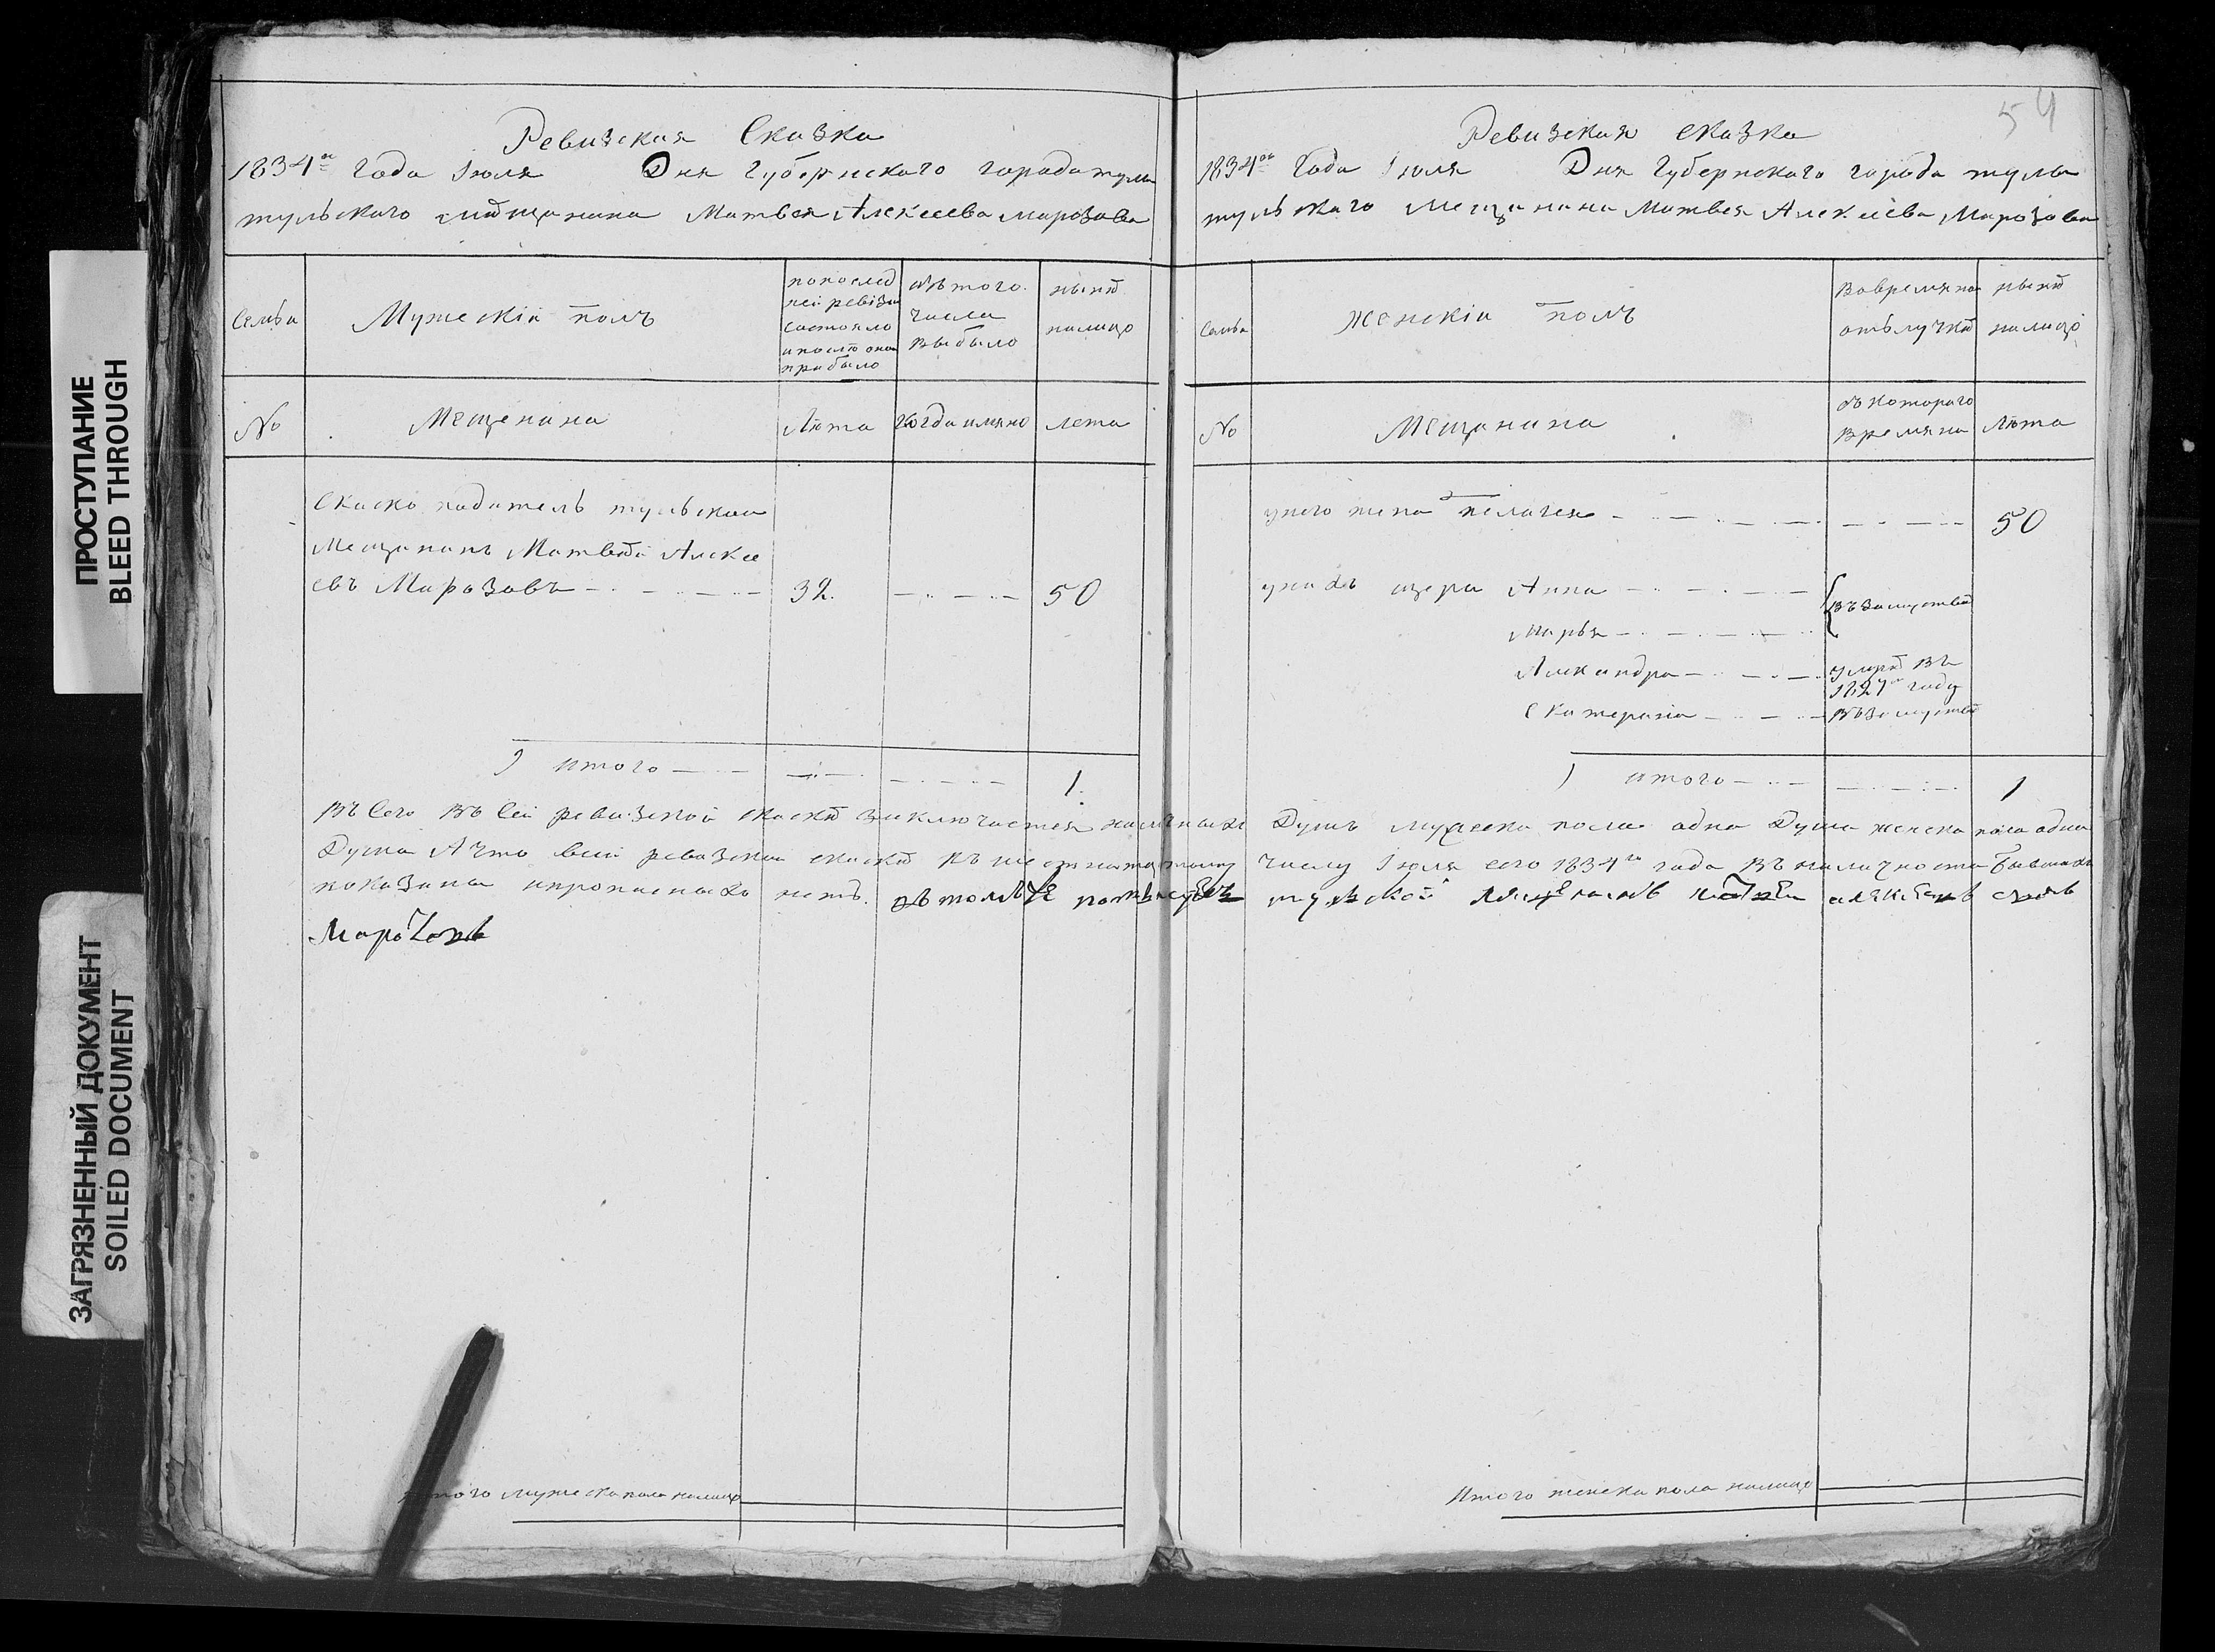 ПРОСТУПАНИЕ
BLEED THROUGH
ЗАГРЯЗНЕННЫЙ ДОКУМЕНТ
SOILED DOCUMENT
Ревизская Сказка
1834го Года Июля Дня Губернского города тулы
тульского мѣщанина Матвея Алексеева Марозова
Семьи
Мужескiй полъ
попослед
ней ревизи
состояло
и послѣ оной
прибыло
изъ того
числа
выбыло
нынѣ
налицо
No
Мещенина
Лѣта
Когда имяно
лета
Скаско подитель тульской
Мещанинъ Матвѣй Алексе
евъ Марозовъ
32.
50
1 итого
1.
Итого мужеска пола налицо
54
Ревизская сказка
1834го Года Июля Дня Губернского города тулы
тульского Мещанина Матвея Алексеева Марозова
Семьи
Женскiй полъ
Вовремянной
отълучкѣ
нынѣ
налицо
No
Мещанина
съ котораго
времяни
Лѣта
унего жена пелагея
50
унихъ дщери Анна
въ замуствѣ
Марья
Александра
умрѣ въ
1827м году
Екатерина
въ замуствѣ
1 итого
1
Въсего въ сей ревизской скаскѣ заключается наличныхъ Душъ мужеска пола одна Душа женска пола одна
Душа Ачто всей ревизской скаскѣ къ шестнатцатому числу Июля сего 1834го года въ наличности бывшихъ
показаны непрописныхъ нетъ. тульской
Марозовъ
Итого женска пола налицо